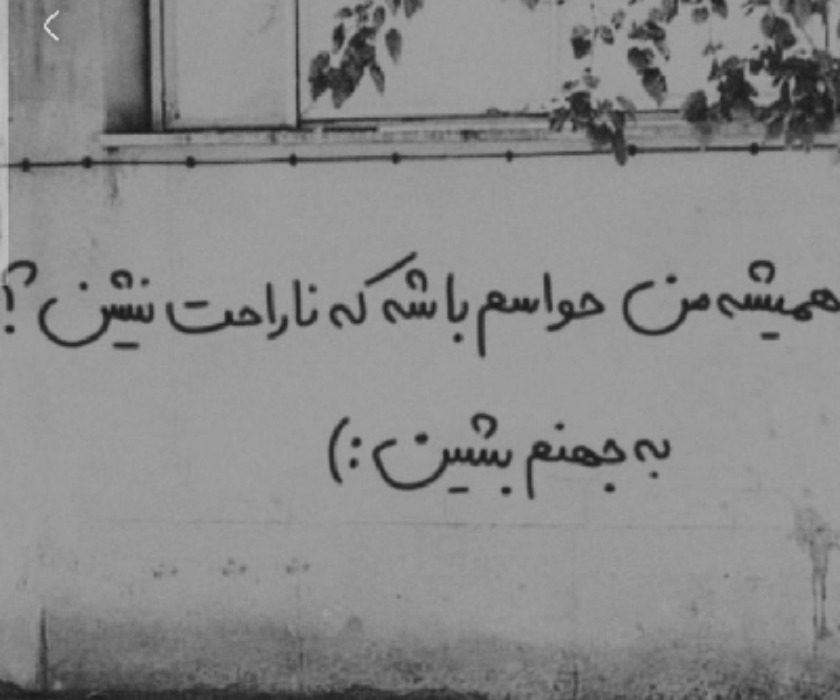 همیشه من حواسم باشه که ناراحت نشین ؟!
به جهنم بشین :)